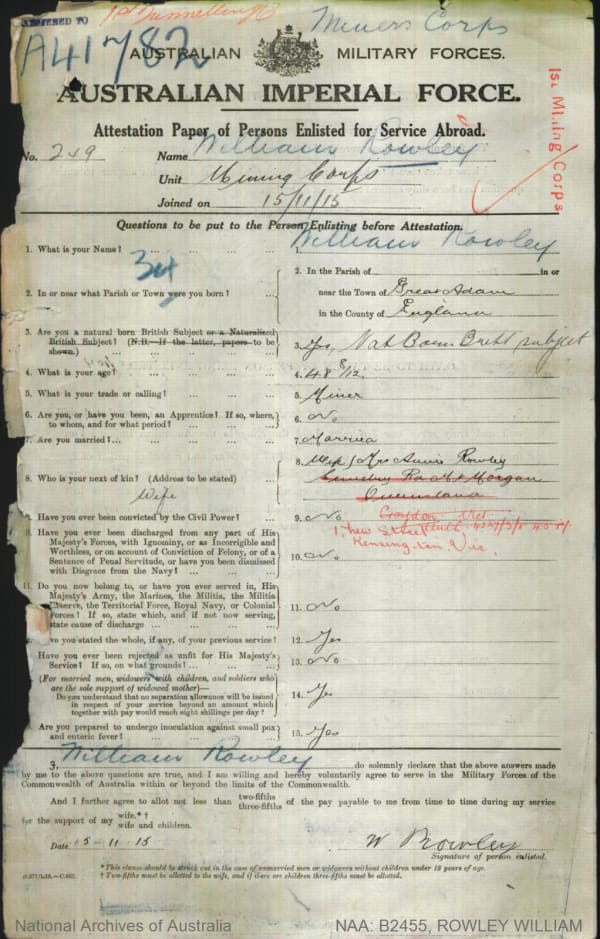 1st Tunnelling Co
Miners Corps
REFERRED TO
A41782
AUSTRALIAN MILITARY FORCES.
AUSTRALIAN IMPERIAL FORCE.
Attestation Paper of Persons Enlisted for Service Abroad.
1st Mining Corps
No. 249 Name William Rowley
Unit Mining Corps
Joined on 15/11/15
Questions to be put to the Person Enlisting before Attestation.
1. What is your Name? ... 1. William Rowley
2. In or near what Parish or Town were you born? ... 2. In the Parish of in or
near the Town of Great Adam
in the County of England
3. Are you a natural born British Subject or a Naturalized
British Subject? (N.B.—If the latter, papers to be
shown.) ... 3. Yes, Nat Born Brit subject
4. What is your age? ... 4. 48 8/12
5. What is your trade or calling? ... 5. Miner
6. Are you, or have you been, an Apprentice? If so, where,
to whom, and for what period? ... 6. No
7. Are you married? ... 7. Married
8. Who is your next of kin? (Address to be stated) ... 8. Wife Mrs Annie Rowley
Cemetery Rd Mt Morgan
Queensland
Wife
Croydon Vic
1, New Street
Kensington, Vic.
9. Have you ever been convicted by the Civil Power? ... 9. No
10. Have you ever been discharged from any part of His
Majesty's Forces, with Ignominy, or as Incorrigible and
Worthless, or on account of Conviction of Felony, or of a
Sentence of Penal Servitude, or have you been dismissed
with Disgrace from the Navy? ... 10. No
11. Do you now belong to, or have you ever served in, His
Majesty's Army, the Marines, the Militia, the Militia
Reserve, the Territorial Force, Royal Navy, or Colonial
Forces? If so, state which, and if not now serving,
state cause of discharge ... 11. No
Have you stated the whole, if any, of your previous service? 12. Yes
Have you ever been rejected as unfit for His Majesty's
Service? If so, on what grounds? ... 13. No
(For married men, widowers with children, and soldiers who
are the sole support of widowed mother)—
Do you understand that no separation allowance will be issued
in respect of your service beyond an amount which
together with pay would reach eight shillings per day? 14. Yes
Are you prepared to undergo inoculation against small pox
and enteric fever? ... 15. Yes
I, William Rowley do solemnly declare that the above answers made
by me to the above questions are true, and I am willing and hereby voluntarily agree to serve in the Military Forces of the
Commonwealth of Australia within or beyond the limits of the Commonwealth.
And I further agree to allot not less than two-fifths three-fifths of the pay payable to me from time to time during my service
for the support of my wife.*† wife and children.
Date 15-11-15 W Rowley
Signature of person enlisted.
*This clause should be struck out in the case of unmarried men or widowers without children under 18 years of age.
† Two-fifths must be allotted to the wife, and if there are children three-fifths must be allotted.
National Archives of Australia NAA: B2455, ROWLEY WILLIAM